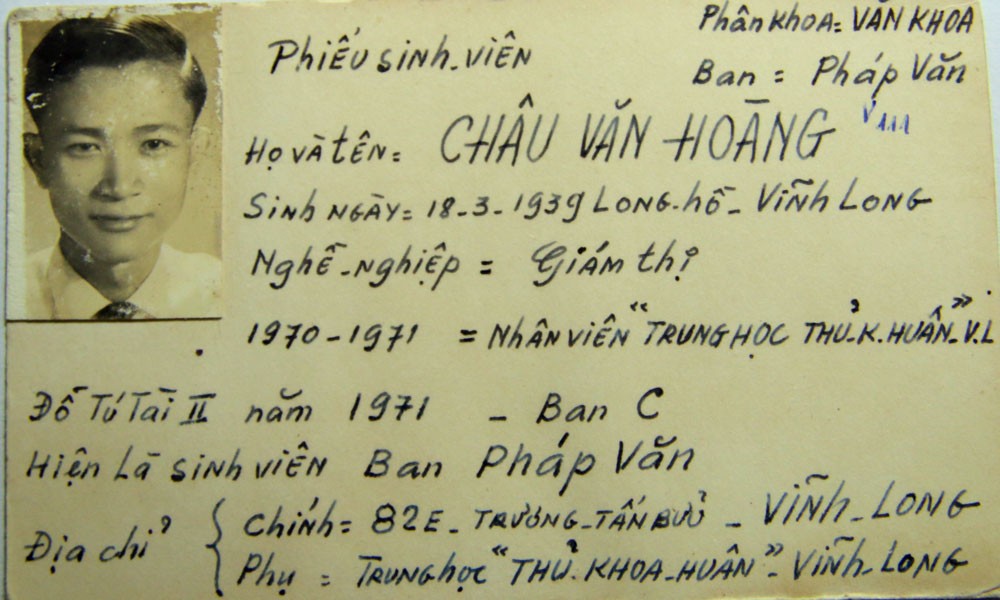 Phân khoa = VĂN KHOA
Phiếu sinh-viên
Ban = Pháp Văn
Họ và tên = CHÂU VĂN HOÀNG
Sinh NGÀY = 18-3-1939 LONG-hồ - Vĩnh LONG
Nghề-nghiệp = Giám thị
1970-1971 = Nhân viên "TRUNG HỌC THỦ-K.HUÂN"-V.L
Đỗ Tú Tài II năm 1971 - Ban C
Hiện Là sinh viên Ban Pháp Văn
Địa chỉ
Chính = 82E - TRƯƠNG-TẤN BỬU - Vĩnh-LONG
Phụ = TRUNG học "THỦ KHOA-HUÂN"-Vĩnh-LONG